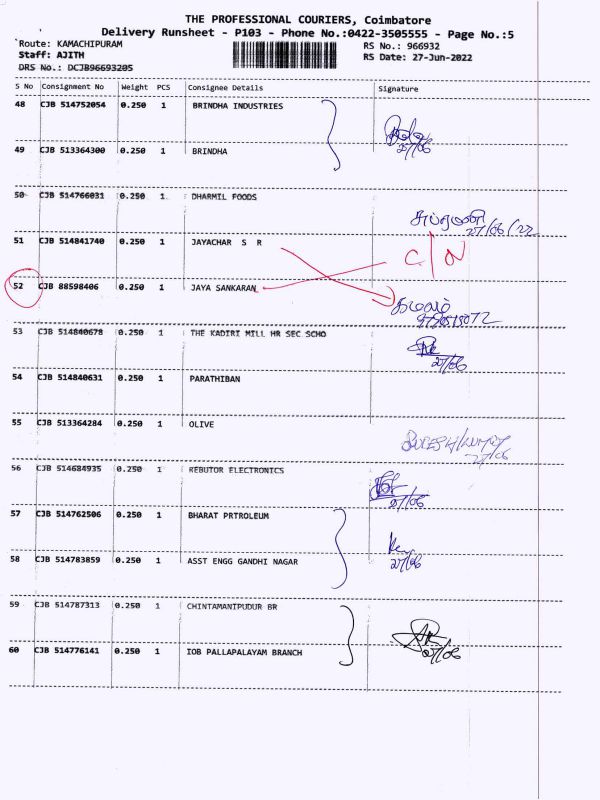 THE PROFESSIONAL COURIERS, Coimbatore
Delivery Runsheet - P103 - Phone No.:0422-3505555 - Page No.:5
Route: KAMACHIPURAM RS No.: 966932
Staff: AJITH RS Date: 27-Jun-2022
DRS No.: DCJB96693205
S No Consignment No Weight PCS Consignee Details Signature
48 CJB 514752054 0.250 1 BRINDHA INDUSTRIES
27/06
49 CJB 513364300 0.250 1 BRINDHA
50 CJB 514766031 0.250 1 DHARMIL FOODS
27/06/22
51 CJB 514841740 0.250 1 JAYACHAR S R
C/N
52 CJB 88598406 0.250 1 JAYA SANKARAN
53 CJB 514840678 0.250 1 THE KADIRI MILL HR SEC SCHO
27/06
54 CJB 514840631 0.250 1 PARATHIBAN
55 CJB 513364284 0.250 1 OLIVE
27/06
56 CJB 514684935 0.250 1 REBUTOR ELECTRONICS
27/06
57 CJB 514762506 0.250 1 BHARAT PRTROLEUM
27/06
58 CJB 514783859 0.250 1 ASST ENGG GANDHI NAGAR
59 CJB 514787313 0.250 1 CHINTAMANIPUDUR BR
27/06
60 CJB 514776141 0.250 1 IOB PALLAPALAYAM BRANCH